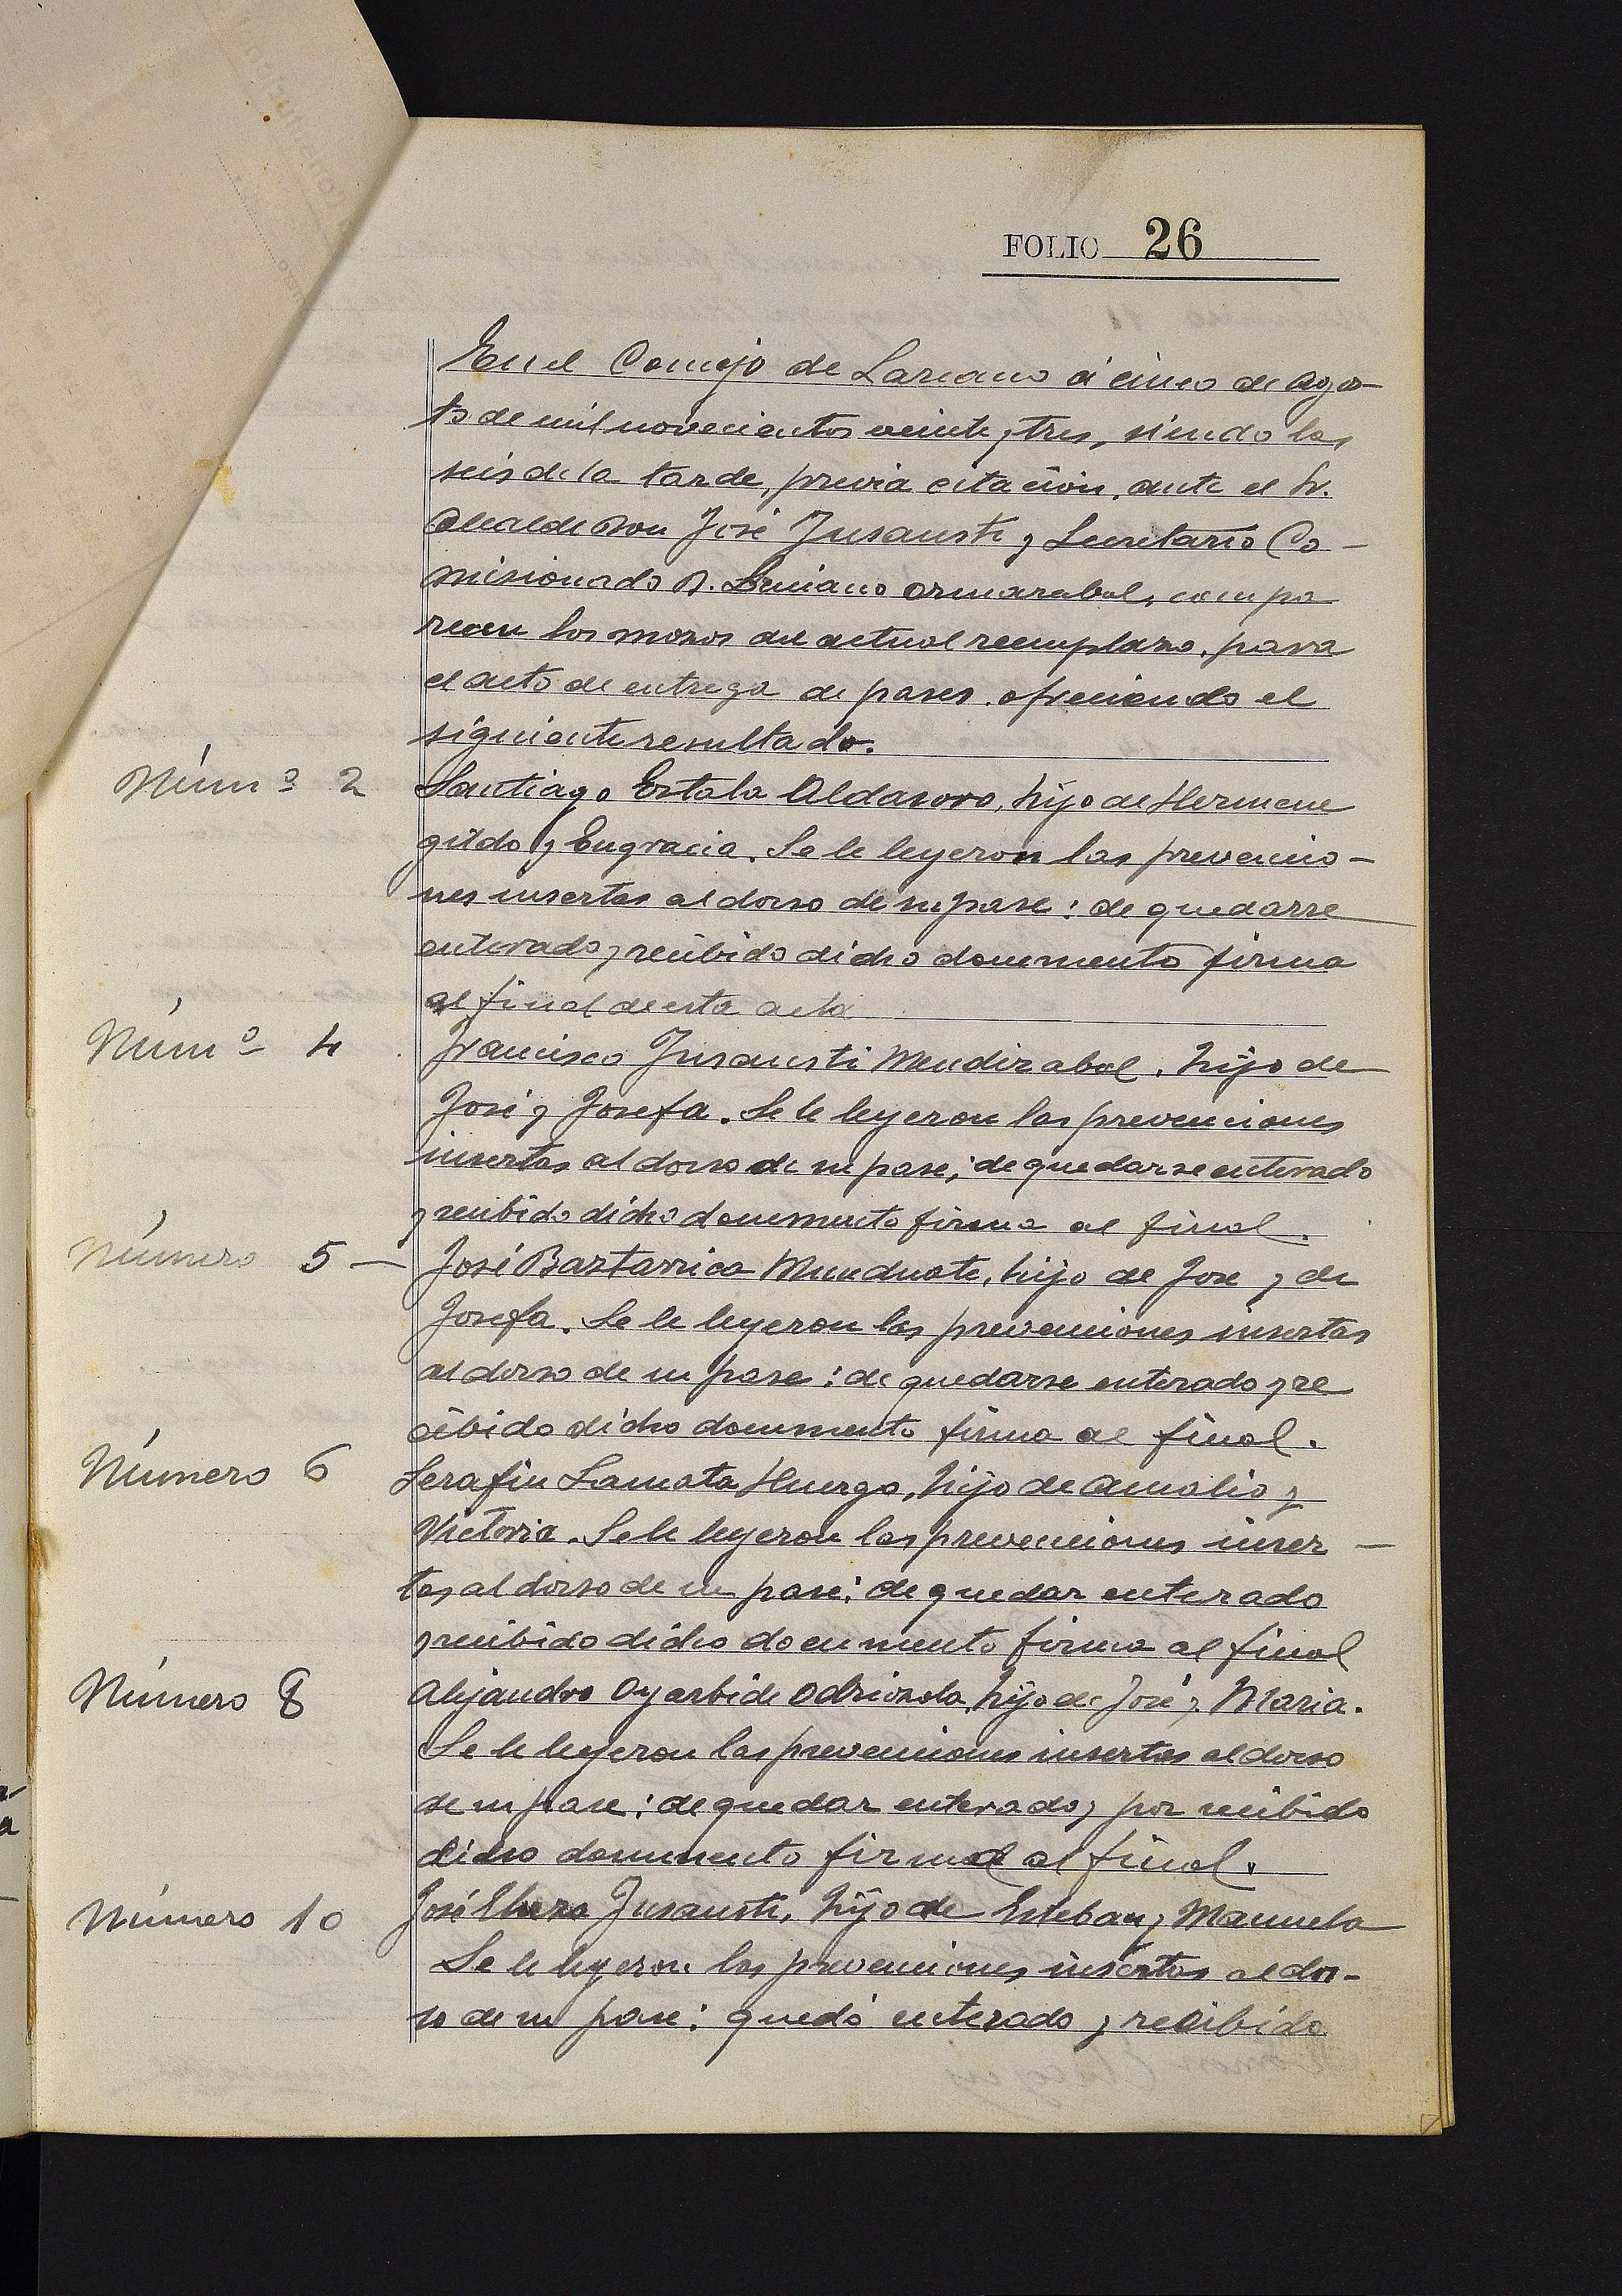 FOLIO 26
En el Concejo de Lazcano á cinco de Agos-
to de mil novecientos veinte y tres, siendo las
seis de la tarde, previa citación, ante el Sr.
Alcalde Don José Jusausti y Secretario Co-
misionado D. Luciano Ormazabal, compa
recen los mozos del actual reemplazo, para
el acto de entrega de pases, ofreciendo el
siguiente resultado.
Númº 2 Santiago Estala Aldasoro, hijo de Hermene
gildo y Engracia. Se le leyeron las prevencio-
nes insertas al dorso de su pase: de quedarse
enterado y recibido dicho documento firma
al final de esta acta
Númº 4 Francisco Jusausti Mendizabal, hijo de
José y Josefa. Se le leyeron las prevenciones
insertas al dorso de su pase; de quedarse enterado
y recibido dicho documento firma al final.
Número 5 — José Bastarrica Munduate, hijo de Jose y de
Josefa. Se le leyeron las prevenciones insertas
al dorso de su pase: de quedarse enterado y re
cibido dicho documento firma al final.
Número 6 Serafin Lamata Huergo, hijo de Amalio y
Victoria. Se le leyeron las prevenciones inser-
tas al dorso de su pase: de quedar enterado
y recibido dicho documento firma al final
Número 8 Alejandro Oyarbide Odriozola, hijo de José y Maria.
Se le leyeron las prevenciones insertas al dorso
de su pase: de quedar enterado y por recibido
dicho documento firma al final.
Número 10 José Jusausti, hijo de Esteban y Manuela
Se le leyeron las prevenciones insertas al dor-
so de su pase: quedó enterado y recibido